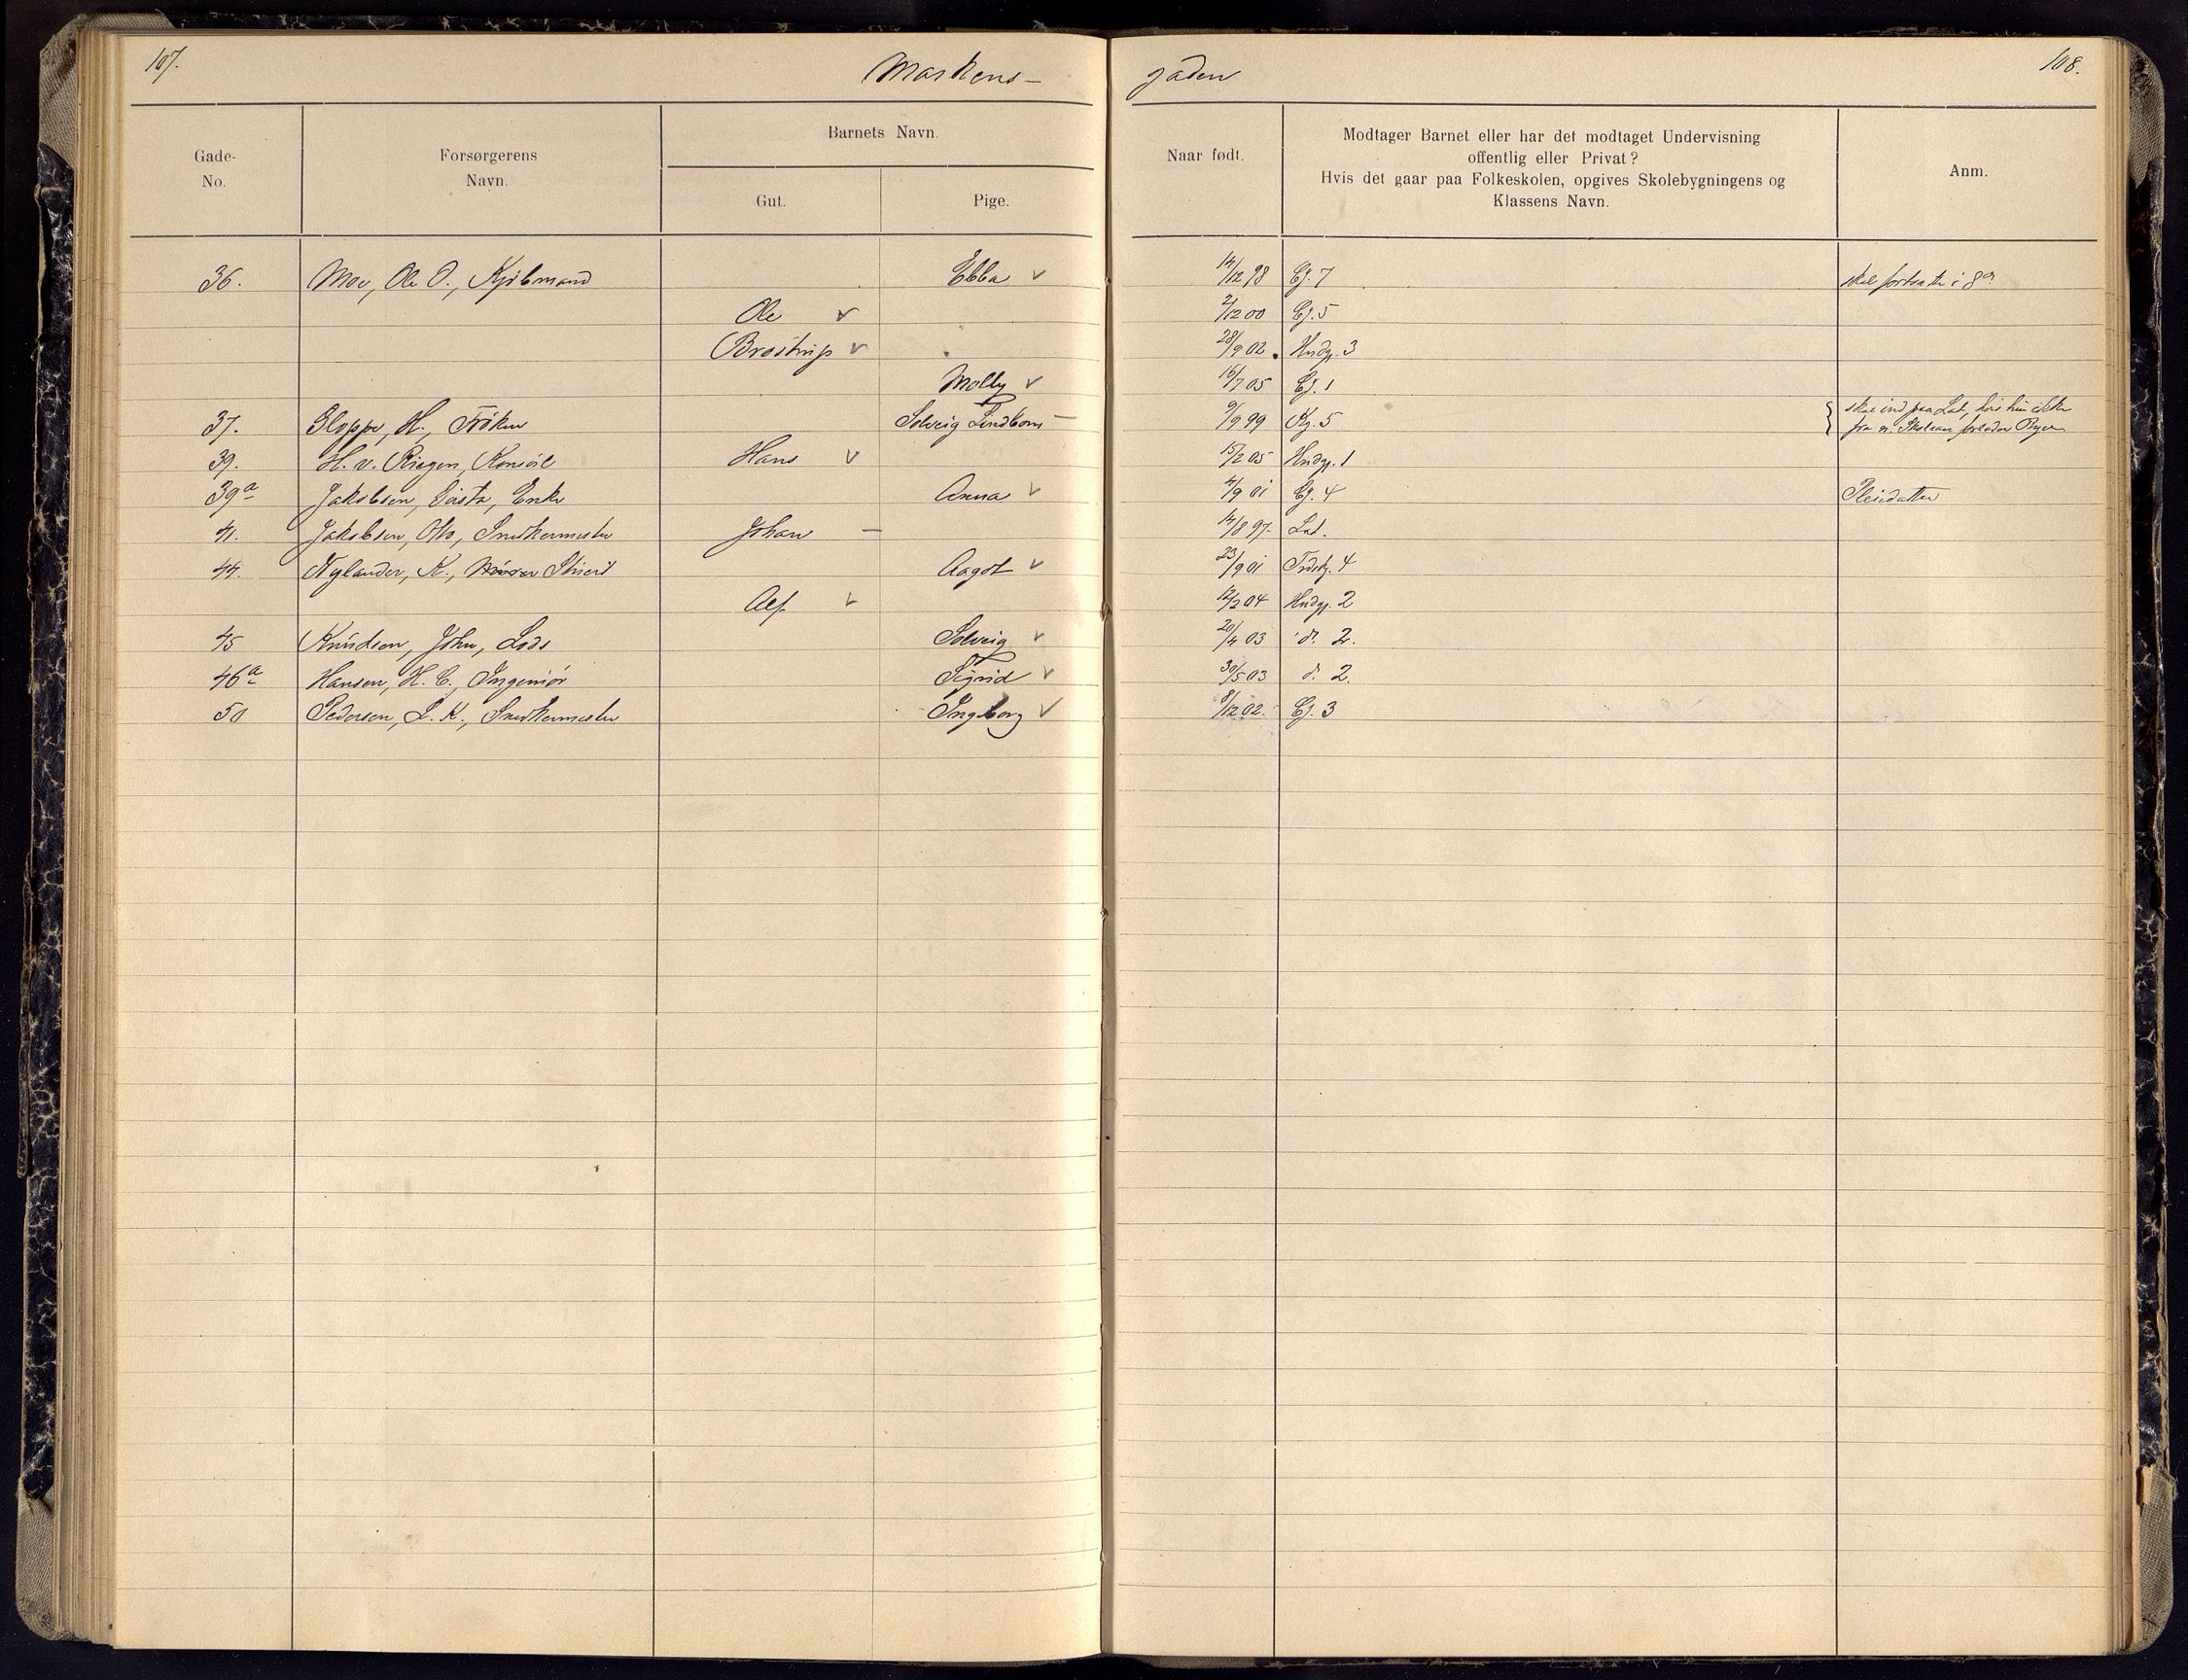 107.
Markens-
gaden
108.
Gade-
No.
Forsørgerens
Navn.
Barnets Navn.
Gut.
Pige.
Naar født.
Modtager Barnet eller har det modtaget Undervisning
offentlig eller Privat?
Hvis det gaar paa Folkeskolen, opgives Skolebygningens og
Klassens Navn.
Anm.
36. Moe, Ole O., Kjøbmand Ebba v 14/12 98 Cj. 7 skal fortsætte i 8de
Ole v 2/12 00 Cj. 5
Brostrup v 28/9 02. Hndg. 3
Molly v 16/7 05 Cj. 1
37. Gloppe, H., Frøken Solveig Lindbom – 9/9 99 Kg. 5 skal ind paa Lat., hvis hun ikke
fra n. Skoleaar forlader Byen
39. H. v. Ringen, Konsul Hans v 15/2 05 Hndg. 1
39a Jakobsen, Gusta, Enke Anna v 4/9 01 Cj. 4 Pleiedatter
41. Jakobsen, Otto, Snedkermester Johan – 14/8 97 Lat.
44. Nylander, K., Murer Skuesp Aagot v 23/9 01 Trdsk. 4
Alf v 12/2 04 Hndg. 2
45 Knudsen, John, Lods Solveig v 20/4 03 do 2.
46a Hansen, H. C., Ingeniør Sigrid v 30/5 03 do 2.
50 Pedersen, L. K., Snedkermester Ingeborg v 8/12 02. Cj. 3